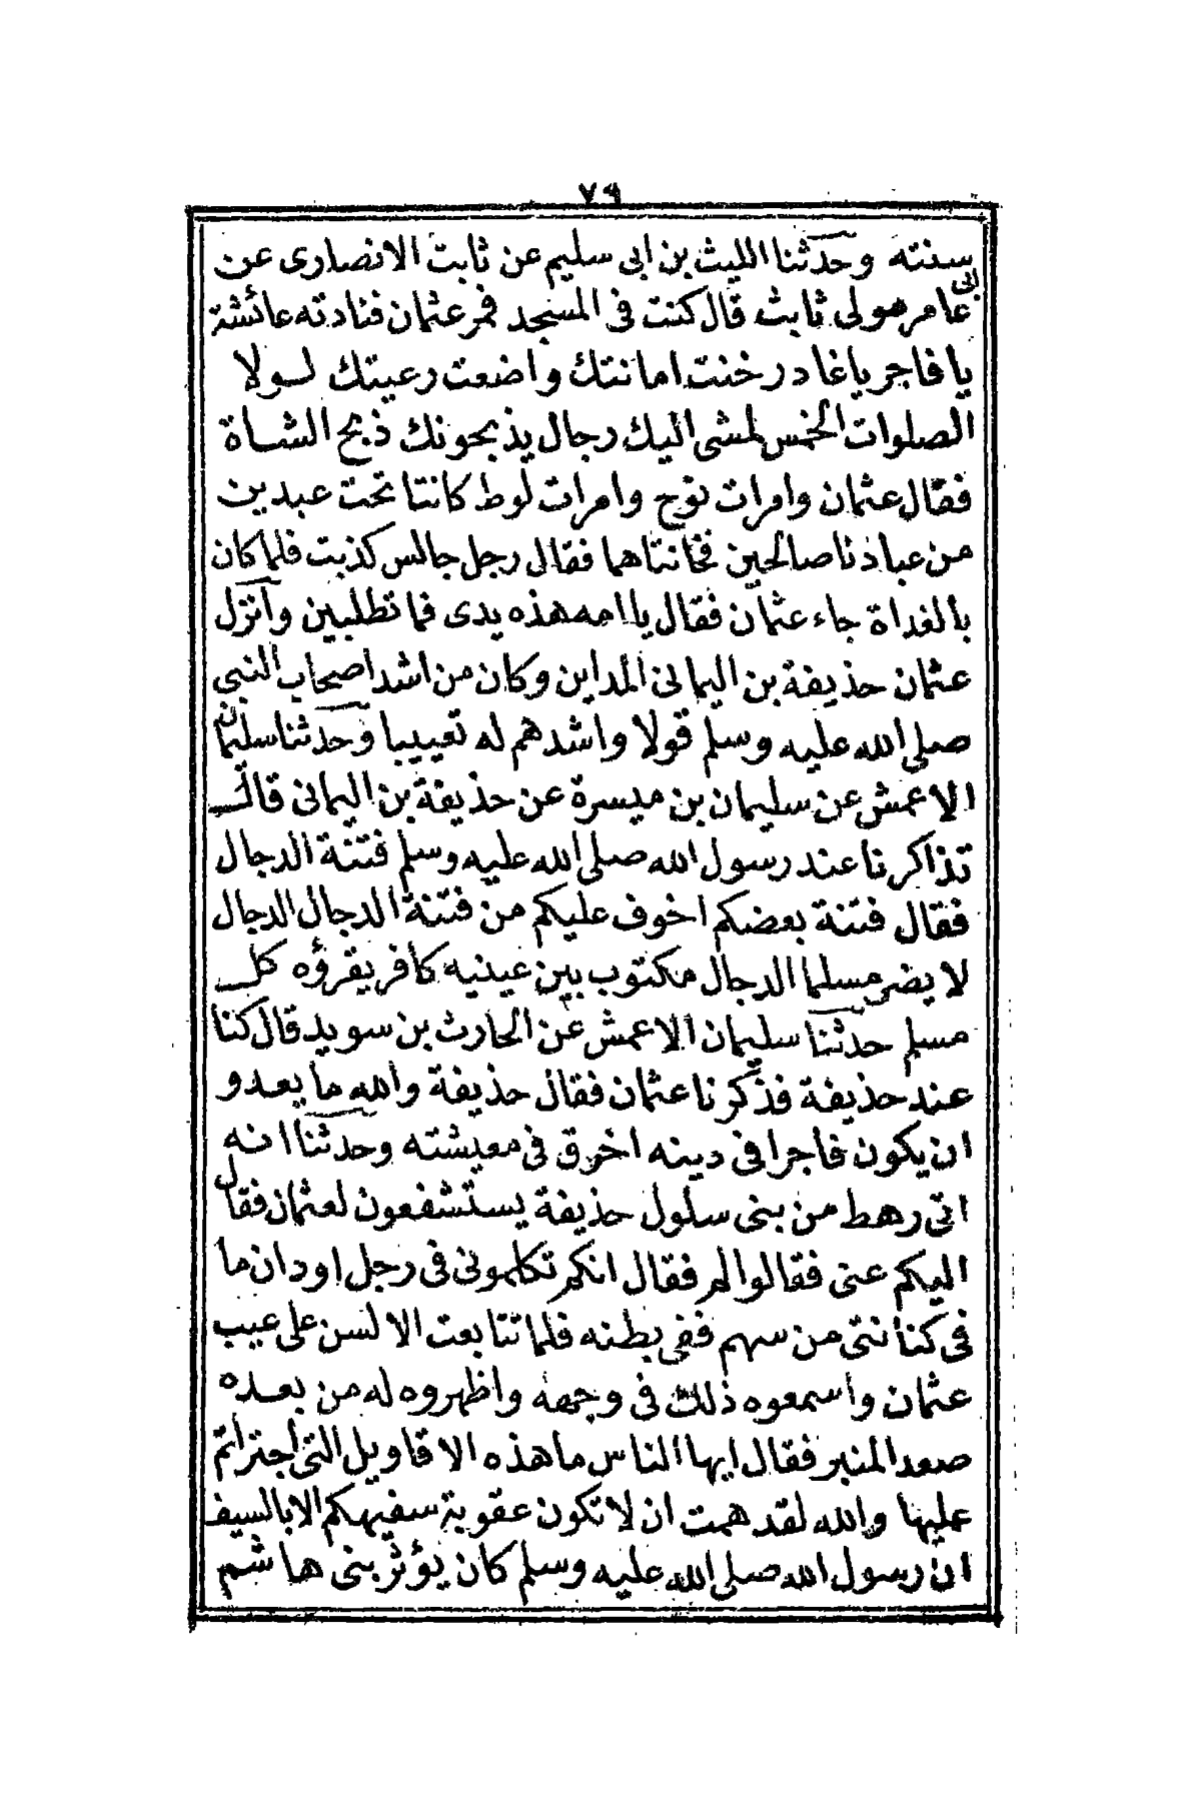 ٧٩
سنته وحدثنا الليث بن ابى سليم عن ثابت الانصارى عن ابى
عامر مولى ثابث قال كنت فى المسجد فمر عثمان فنادته عائشة
يا فاجر يا غادر خنت امانتك واضعت رعيتك لولا
الصلوات الخمس لمشى اليك رجال يذبحونك ذبح الشاة
فقال عثمان وامرات نوح وامرات لوط كانتا تحت عبدين
من عبادنا صالحين فخانتاهما فقال رجل جالس كذبت فلما كان
بالغداة جاء عثمان فقال يا امه هذه يدى فما تطلبين وانزل
عثمان حذيفة بن اليمانى المداين وكان من اشد اصحاب النبى
صلى الله عليه وسلم قولا واشدهم له تعييبا وحدثنا سليمان
الاعمش عن سليمان بن ميسرة عن حذيفة بن اليمانى قال
تذاكرنا عند رسول الله صلى الله عليه وسلم فتنة الدجال
فقال فتنة بعضكم اخوف عليكم من فتنة الدجال الدجال
لا يضر مسلما الدجال مكتوب بين عينيه كافر يقرؤه كل
مسلم حدثنا سليمان الاعمش عن الحارث بن سويد قال كنا
عند حذيفة فذكرنا عثمان فقال حذيفة والله ما يعدو
ان يكون فاجرا فى دينه اخرق فى معيشته وحدثنا انه
اتى رهط من بنى سلول حذيفة يستشفعون لعثمان فقال
اليكم عنى فقالوا لم فقال انكم تكلمونى فى رجل اود ان ما
فى كنانتى من سهم ففى بطنه فلما تتابعت الالسن على عيب
عثمان واسمعوه ذلك فى وجهه واظهروه له من بعده
صعد المنبر فقال ايها الناس ما هذه الاقاويل التى اجتراتم
عليها والله لقد همت ان لا تكون عقوبة سفيهكم الا بالسيف
ان رسول الله صلى الله عليه وسلم كان يؤثر بنى هاشم